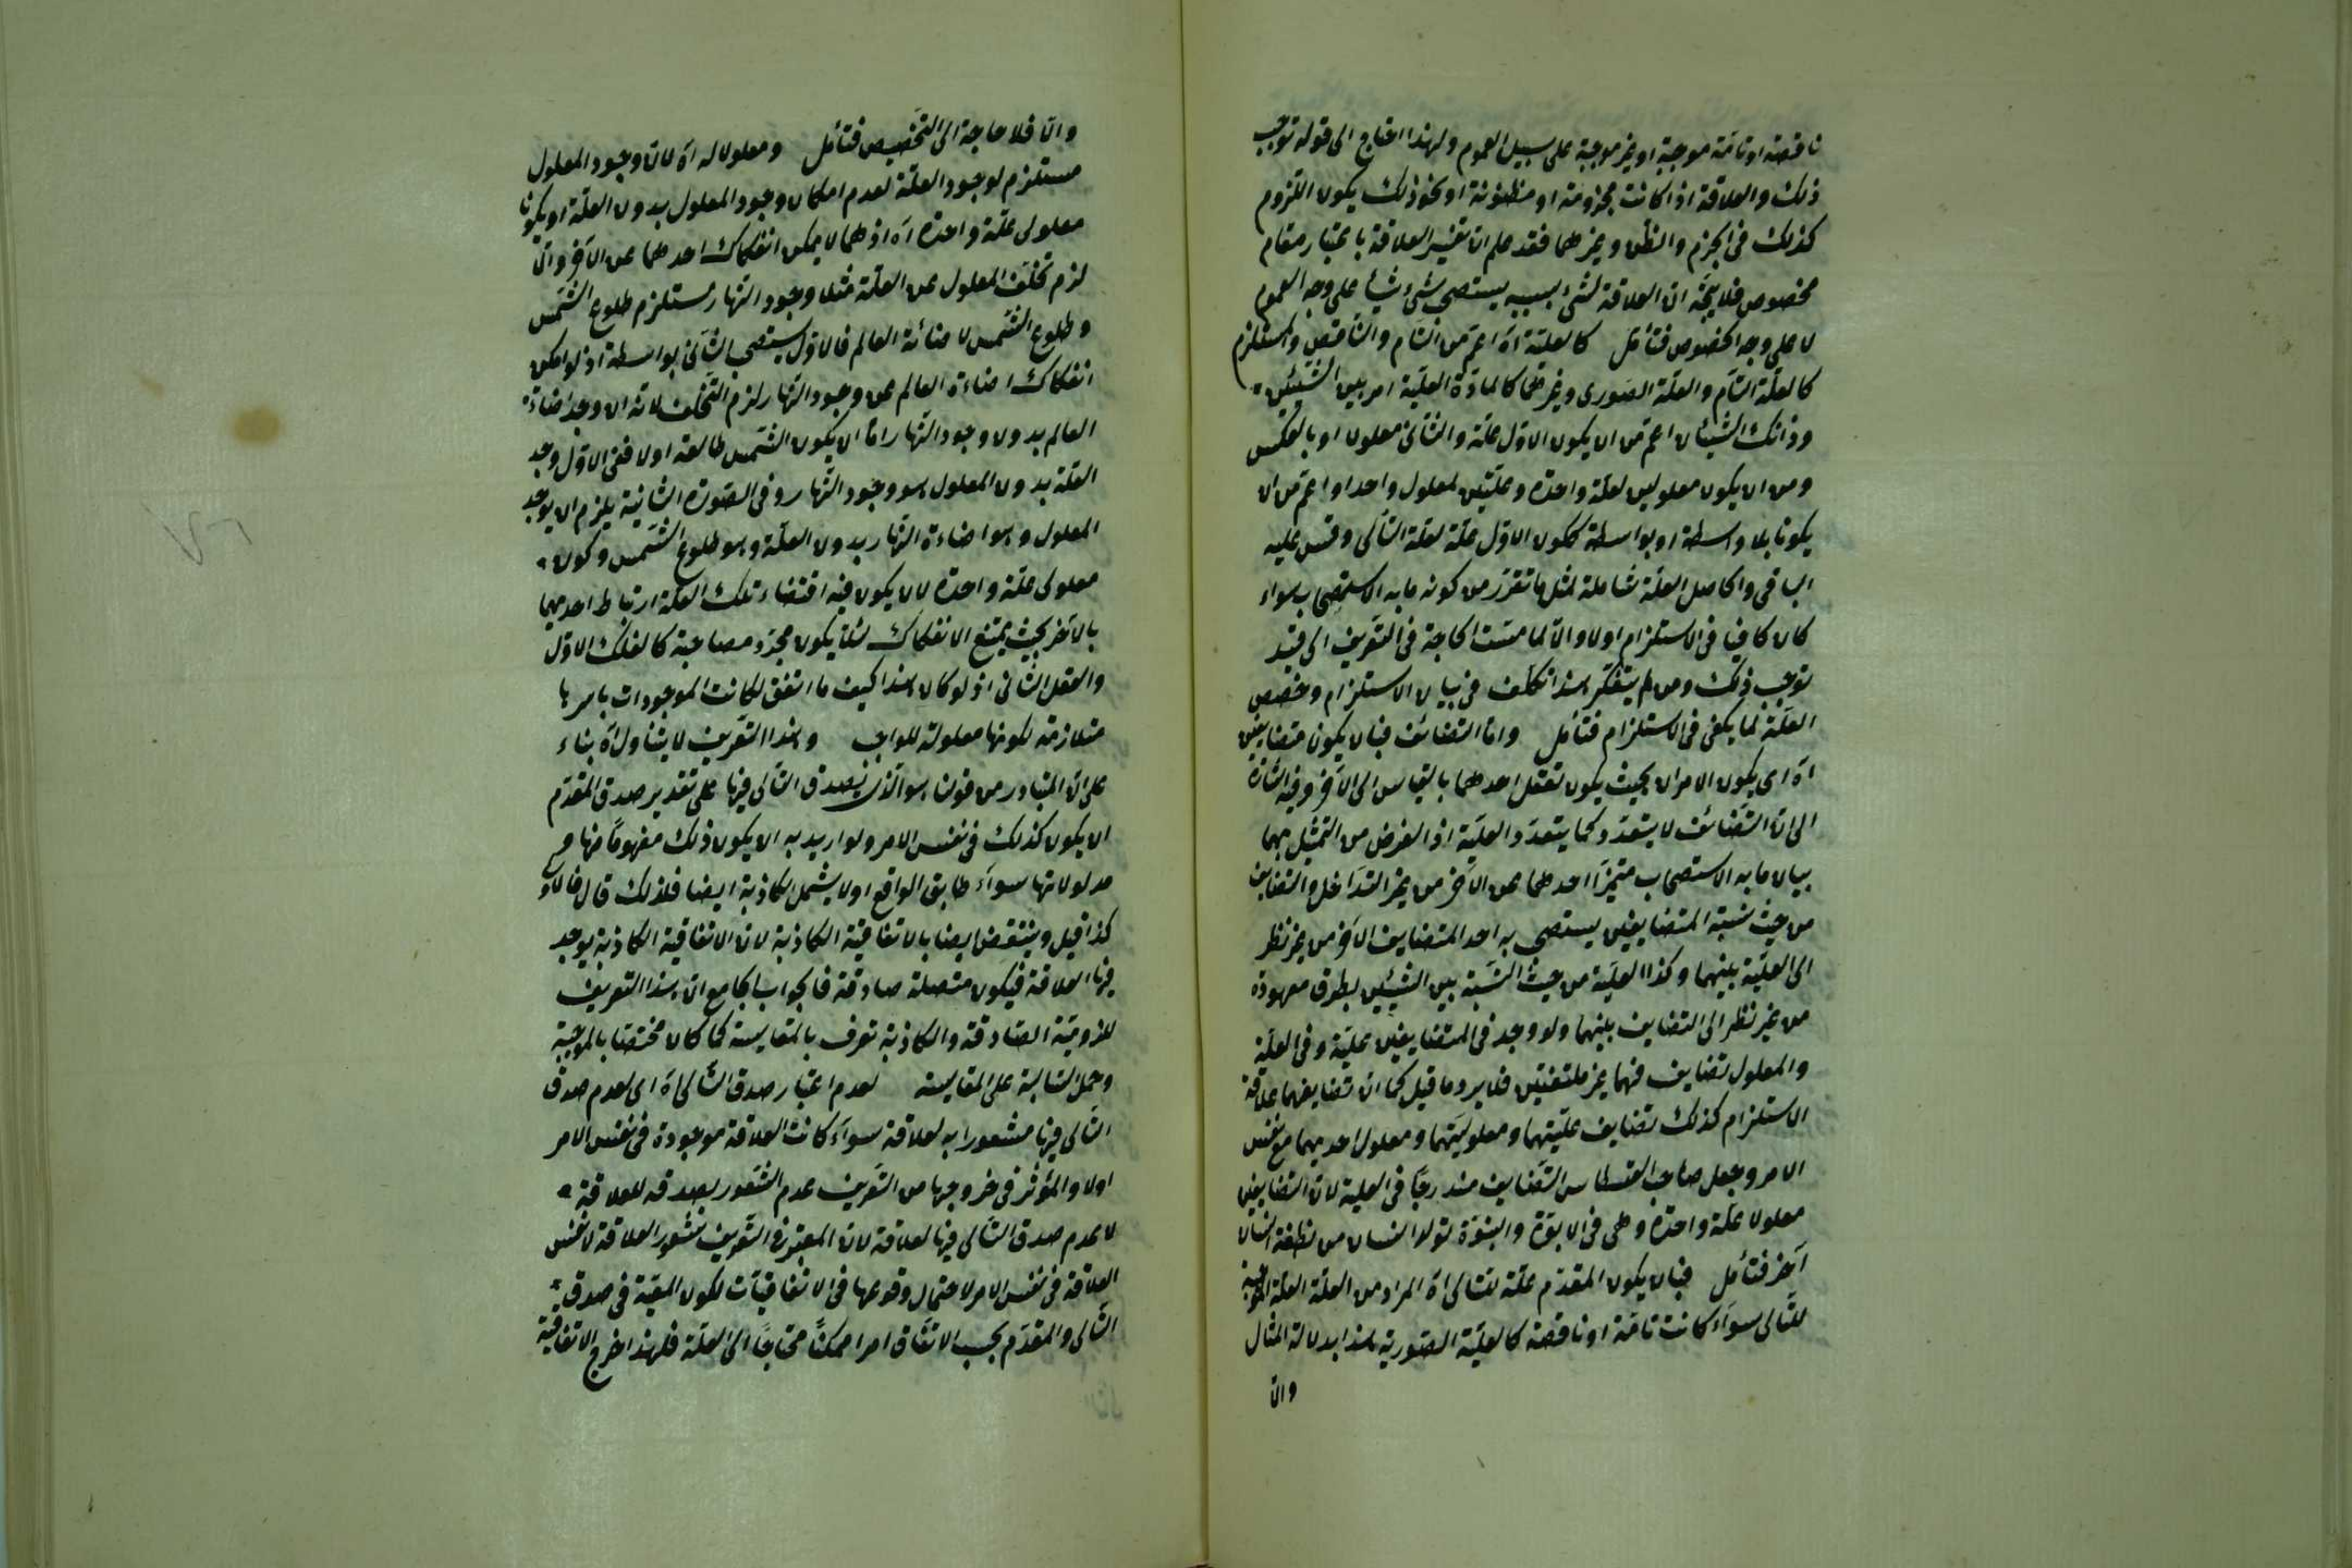 ناقصة او تامّة موجبة او غير موجبة على سبيل العموم ولهذا احتاج الى قوله توجب
ذلك والعلاقة اذا كانت مجزومة او مظنونة او نحو ذلك يكون اللزوم
كذلك فى الجزم والظنّ وغيرهما فقد علم انّ تفسير العلاقة باعتبار مقام
مخصوص فلا يتّجه انّ العلاقة لشئ بسببه يستصحب شئ شيأ على وجه العموم
لا على وجه الخصوص فتأمّل كالعليّة آه اعمّ من التّام والنّاقص والمستلزم
كالعلّة التّام والعلّة الصّورى وغيرهما كالمادّة العليّة امر بين الشّيئين
وذانك الشّيئان اعمّ من ان يكون الاوّل علّة والثّانى معلولا او بالعكس
ومن ان يكون معلولين لعلّة واحدة وعلّتين لمعلول واحد او اعمّ من ان
يكونا بلا واسطة او بواسطة ككون الاوّل علّة لعلّة التّالى وقس عليه
الباقى والحاصل العلّة شاملة لمثل ما تقرّر من كونه ما به الاستصحاب سواء
كان كافيا فى الاستلزام اولا والّا لما مسّت الحاجة فى التّعريف الى قيد
توجب ذلك ومن لم يتفكّر هذا تكلّف فى بيان الاستلزام وخصّص
العلّة لما يكفى فى الاستلزام فتأمّل وامّا التّضائف فبان يكونا متضايفين
آه اى يكون الامران بحيث يكون تعقّل احدهما بالقياس الى الآخر وفيه اشارة
الى انّ التّضائف لا يتعدّد كما يتعدّد العليّة اذ الغرض من التّمثيل بهما
بيان ما به الاستصحاب متميّزا احدهما عن الآخر من غير التّداخل والتّضايف
من حيث نسبة المتضايفين يستصحب به احد المتضايف الآخر من غير نظر
الى العليّة بينهما وكذا العليّة من حيث النّسبة بين الشّيئين بطرق معهودة
من غير نظر الى التضايف بينهما ولو وجد فى المتضايفين عليّة وفى العلّة
والمعلول تضايف فهما غير ملتفتين فلا يرد ما قيل كما انّ تضايفهما علاقة
الاستلزام كذلك تضايف علّيتهما ومعلوليّتهما ومعلول احديهما مع نفس
الامر وجعل صاحب القسطاس التّضايف مندرجًا فى العلية لانّ التضايفين
معلولا علّة واحدة وهى فى الابوّة والبنوّة تولّد انسان من نطفة انسان
آخر فتأمّل فبان يكون المقدّم علّة للتّالى آه المراد من العلّة العلّة الموجبة
للتّالى سواء كانت تامّة او ناقصة كالعلّيّة الصّورية هذا بدلالة المثال
والّا
والّا فلا حاجة الى التّخصيص فتأمّل ومعلولا له آه لانّ وجود المعلول
مستلزم لوجود العلّة لعدم امكان وجود المعلول بدون العلّة او يكونا
معلولى علّة واحدة آه اذ هما لا يمكن انفكاك احدهما عن الآخر والّا
لزم تخلّف المعلول عن العلّة مثلا وجود النّهار مستلزم طلوع الشّمس
وطلوع الشّمس لاضائة العالم فالاوّل يستصحب الثّانى بواسطة اذ لو امكن
انفكاك اضاءة العالم عن وجود النّهار لزم التّخلّف لانّه ان وجد اضاءة
العالم بدون وجود النّهار امّا ان يكون الشّمس طالعة اولا ففى الاوّل وجد
العلّة بدون المعلول هو وجود النّهار وفى الصّورة الثّانية يلزم ان يوجد
المعلول وهو اضاءة النّهار بدون العلّة وهو طلوع الشّمس وكون
معلولى علّة واحدة لان يكون فيه اقتضاء تلك العلّة ارتباط احديهما
بالآخر بحيث يمتنع الانفكاك لئلّا يكون مجرّد مصاحبة كالفلك الاوّل
والعقل الثّانى اذ لو كان هذا كيف ما اتّفق لكانت الموجودات باسرها
متلازمة لكونها معلولة للواجب وهذا التّعريف لا يتناول آه بناء
على انّ المتبادر من قولنا هو الّذى يصدق التّالى فيها على تقدير صدق المقدّم
ان يكون كذلك فى نفس الامر ولو اريد به ان يكون ذلك مفهومًا منها و
مدلولاتها سواء طابق الواقع اولا يشمل الكاذبة ايضا فلذلك قال فالاولى
كذا قيل وينتقض ايضا بالاتفاقيّة الكاذبة لانّ الاتفاقيّة الكاذبة يوجد
فيها العلاقة فيكون متّصلة صادقة فالجواب الجامع انّ هذا التعريف
للزوميّة الصّادقة والكاذبة تعرف بالمقايسة كما كان مختصّا بالموجبة
وحمل السّالبة على المقايسة لعدم اعتبار صدق التّالى آه اى لعدم صدق
التّالى فيها مشعورا به لعلاقة سواء كانت العلاقة موجودة فى نفس الامر
اولا والمؤثّر فى خروجها من التّعريف عدم الشّعور بصدقه للعلاقة
لا عدم صدق التّالى فيها لعلاقة لانّ المعتبر فى التّعريف شعور العلاقة لا نفس
العلاقة فى نفس الامر لاحتمال وقوعها فى الاتفاقيّات لكون المعيّة فى صدق
التّالى والمقدّم بحسب الاتّفاق امرا ممكنًا محتاجًا الى العلّة فلهذا اخرج الاتفاقيّة